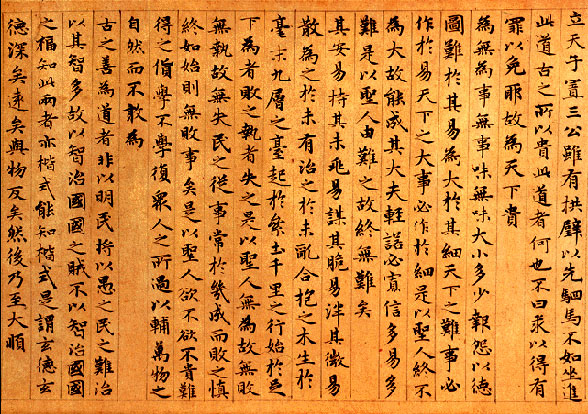 立天子置三公雖有拱璧以先駟馬不如坐進
此道古之所以貴此道者何也不曰求以得有
罪以免耶故為天下貴
為無為事無事味無味大小多少報怨以德
圖難於其易為大於其細天下之難事必
作於易天下之大事必作於細是以聖人終不
為大故能成其大夫輕諾必寡信多易多
難是以聖人由難之故終無難矣
其安易持其未兆易謀其脆易泮其微易
散為之於未有治之於未亂合抱之木生於
毫末九層之臺起於絫土千里之行始於足
下為者敗之執者失之是以聖人無為故無敗
無執故無失民之從事常於幾成而敗之慎
終如始則無敗事矣是以聖人欲不欲不貴難
得之貨學不學復眾人之所過以輔萬物之
自然而不敢為
古之善為道者非以明民將以愚之民之難治
以其智多故以智治國國之賊不以智治國國
之福知此兩者亦楷式能知楷式是謂玄德玄
德深矣遠矣與物反矣然後乃至大順